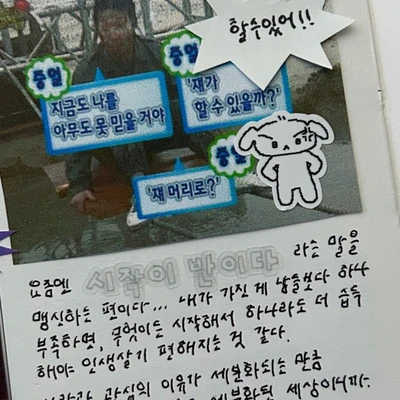 할 수 있어!!
중일
지금도 나를
아무도 못 믿을 거야
중일
'쟤가
할 수 있을까?'
중일
'쟤 머리로?'
요즘엔 시작이 반이다 라는 말을
맹신하는 편이다... 내가 가진 게 남들보다 하나
부족하면, 무엇이든 시작해서 하나라도 더 습득
해야 인생살기 편해지는 것 같다.
관심의 이유가 세분화되는 만큼
세분화된 세상이니까.